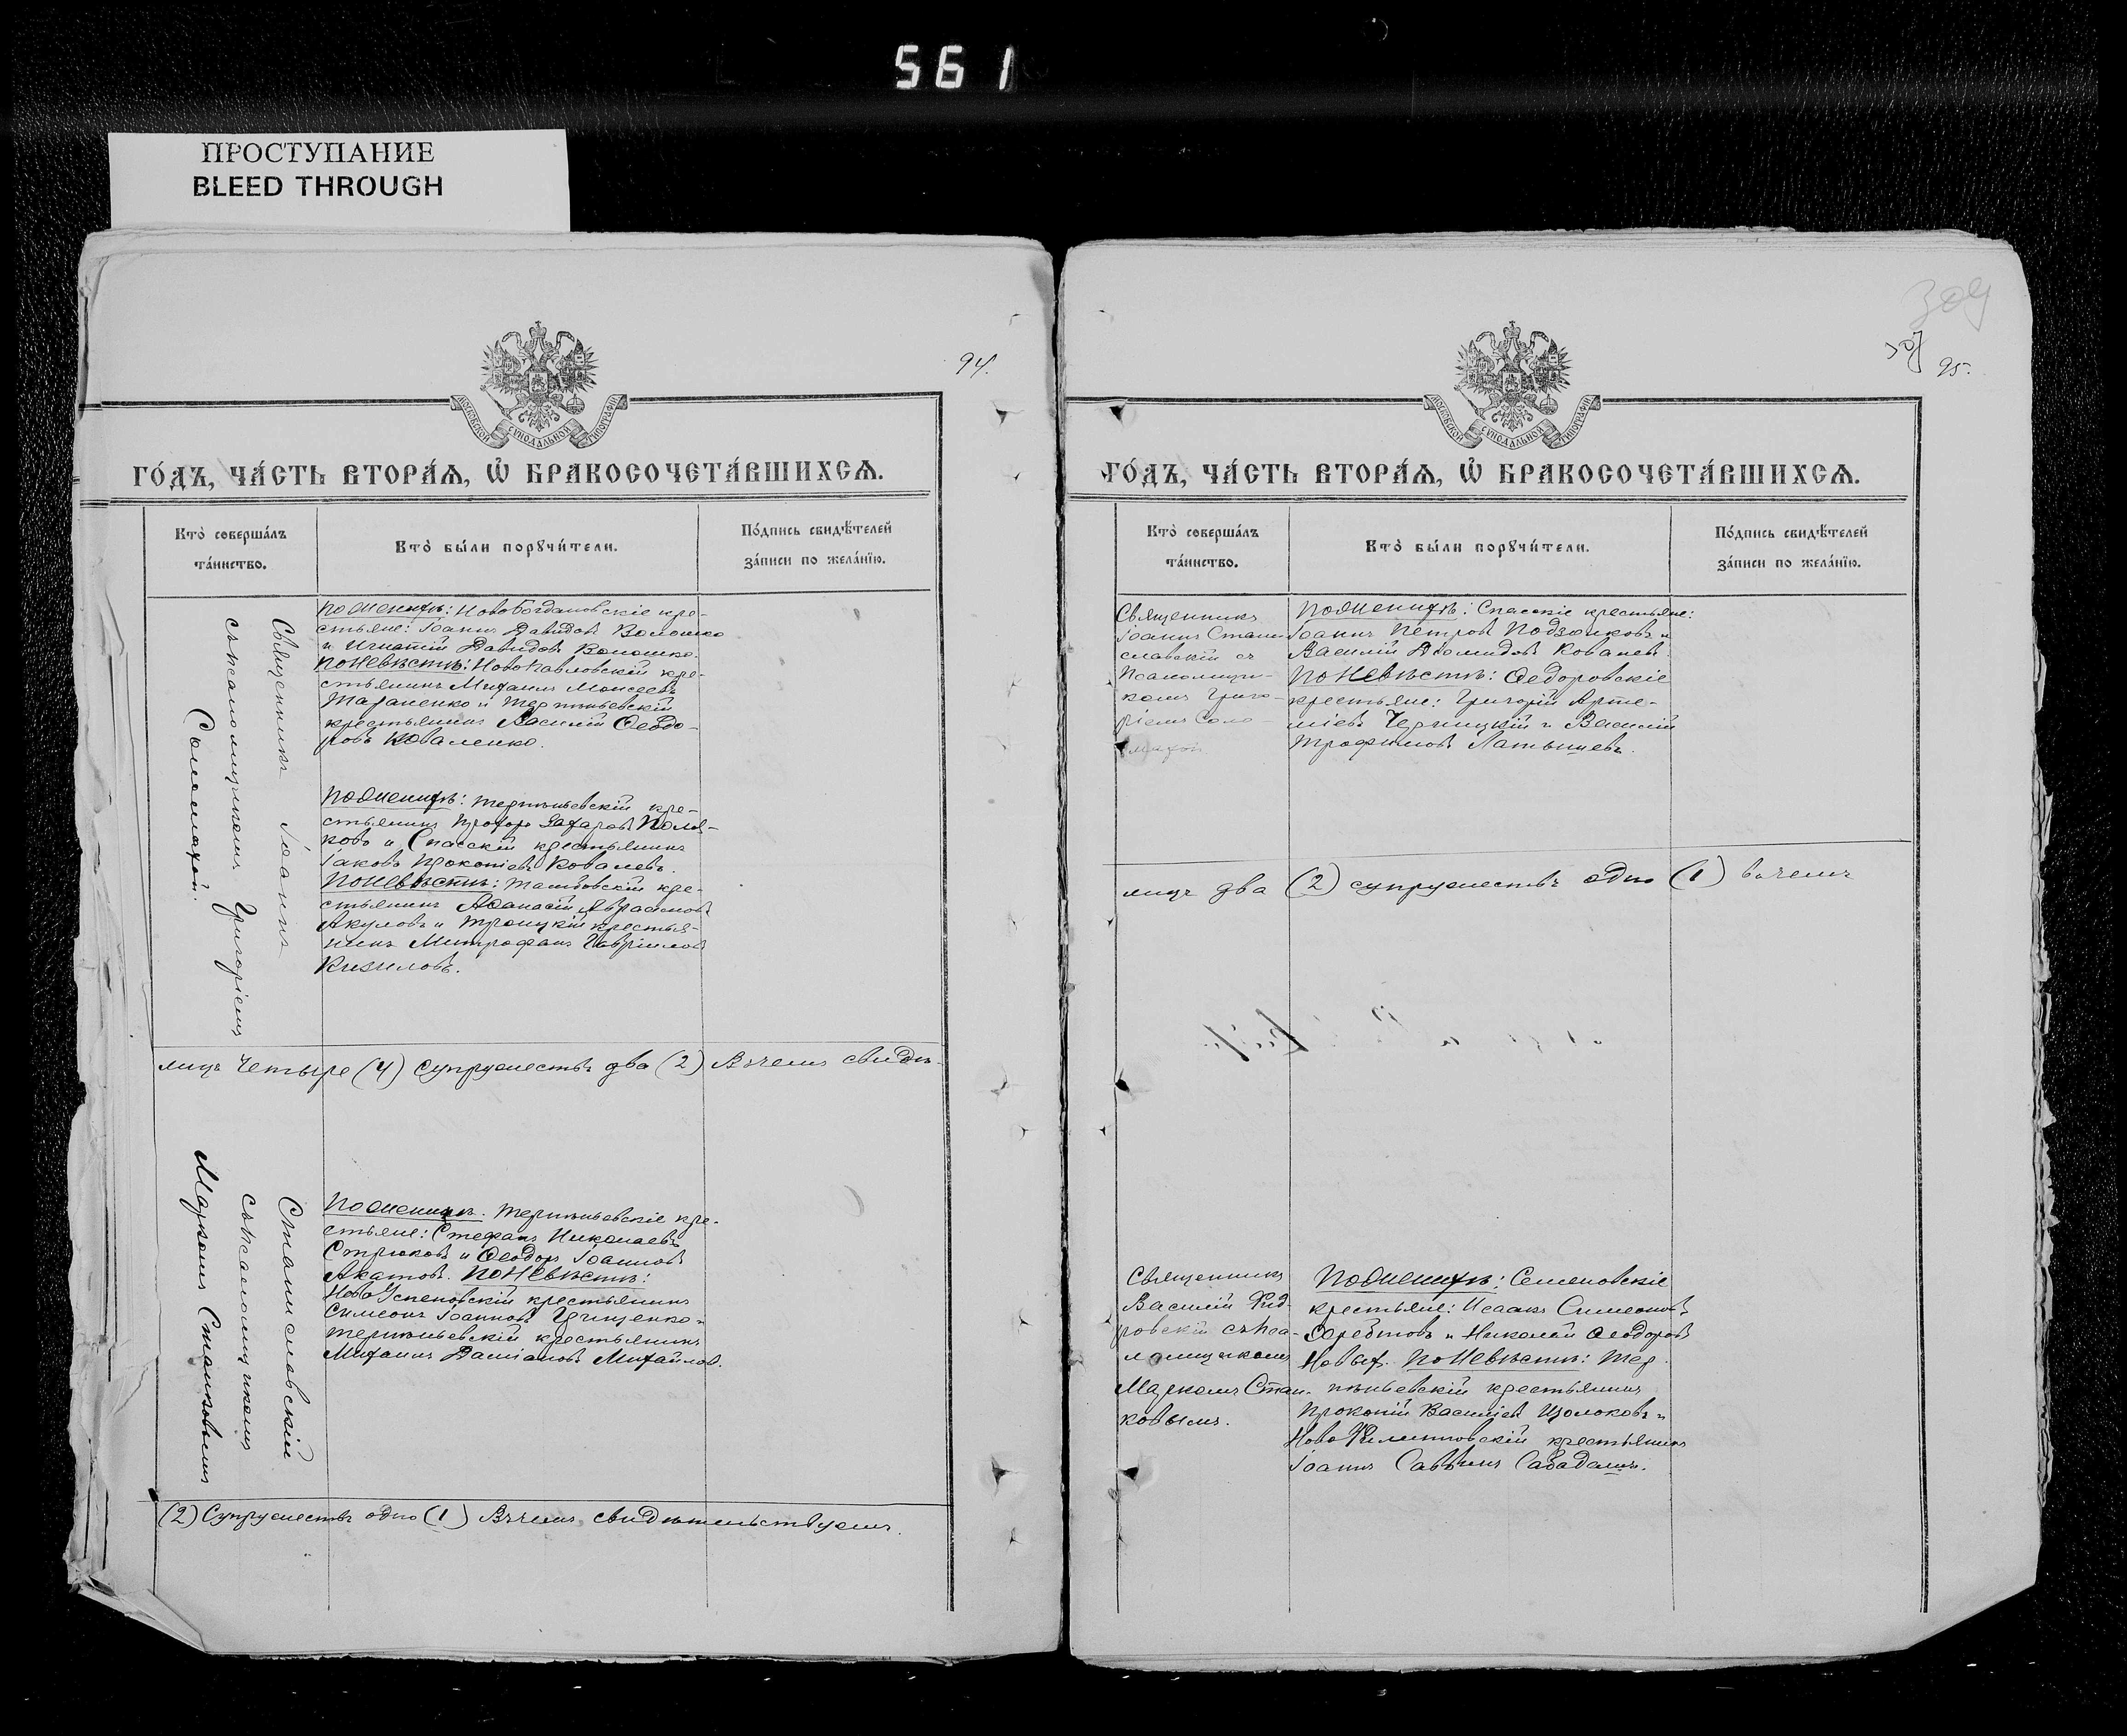 561
ПРОСТУПАНИЕ
BLEED THROUGH
94.
МОСКОВСКОЙ СѴНОДАЛЬНОЙ ТИПОГРАФІИ
ГО́ДЪ, ЧА́СТЬ ВТОРА́Ѧ, Ѽ БРАКОСОЧЕТА́ВШИХСѦ.
Кто̀ соверша́лъ
та́инство.
Кто̀ бы́ли порꙋчи́тели.
По́дпись свидѣ́телей
за́писи по жела́нїю.
Священникъ Іоаннъ
съ псаломщикомъ Григоріемъ
Соломахой.
По женихѣ: Новобогдановскіе кре-
стьяне: Іоаннъ Давидовъ Волошко
и Игнатій Давидовъ Волошко.
По невѣстѣ: Новопавловскій кре-
стьянинъ Михаилъ Моисеевъ
Тараненко и Терпѣньевскій
крестьянинъ Василій Ѳеодо-
ровъ Коваленко.
По женихѣ: Терпѣньевскій кре-
стьянинъ Прохоръ Захаровъ Поля-
ковъ и Спасскій крестьянинъ
Іаковъ Прокопіевъ Ковалевъ.
По невѣстѣ: Тамбовскій кре-
стьянинъ Аѳанасій Аврамовъ
Акуловъ и Троицкій крестья-
нинъ Митрофанъ Гавріиловъ
Кизиловъ.
лицъ четыре (4) супружествъ два (2) Въ чемъ свидѣ-
Станиславскій
съ псаломщикомъ
Маркомъ Станковымъ
По женихѣ: Терпѣньевскіе кре-
стьяне: Стефанъ Николаевъ
Стрюковъ и Ѳеодоръ Іоанновъ
Акатовъ. По невѣстѣ:
Новоуспеновскій крестьянинъ
Симеонъ Іоанновъ Грищенко и
Терпѣньевскій крестьянинъ
Михаилъ Даміановъ Михайлов.
(2) Супружествъ одно (1) Въ чемъ свидѣтельствуемъ.
309
95.
МОСКОВСКОЙ СѴНОДАЛЬНОЙ ТИПОГРАФІИ
ГО́ДЪ, ЧА́СТЬ ВТОРА́Ѧ, Ѽ БРАКОСОЧЕТА́ВШИХСѦ.
Кто̀ соверша́лъ
та́инство.
Кто̀ бы́ли порꙋчи́тели.
По́дпись свидѣ́телей
за́писи по жела́нїю.
Священникъ
Іоаннъ Стани-
славскій съ
Псаломщи-
комъ Григо-
ріемъ Соло-
махой
По женихѣ: Спасскіе крестьяне:
Іоаннъ Петровъ Подзолковъ и
Василій Діомидовъ Ковалев.
По невѣстѣ: Ѳедоровскіе
крестьяне: Григорій Арте-
міевъ Черницкій и Василій
Трофимовъ Латышевъ.
лицъ два (2) супружествъ одно (1) въ чемъ
Священникъ
Василій
ровскій съ пса-
ломщикомъ
Маркомъ Стан-
ковымъ.
По женихѣ: Семеновскіе
крестьяне: Исаакъ Симеоновъ
и Николай Ѳеодоровъ
Новых. По невѣстѣ: Тер-
пѣньевскій крестьянинъ
Прокопій Василіевъ Щолоковъ и
Новофилипповскій крестьянинъ
Іоаннъ Саввинъ Сабадашъ.